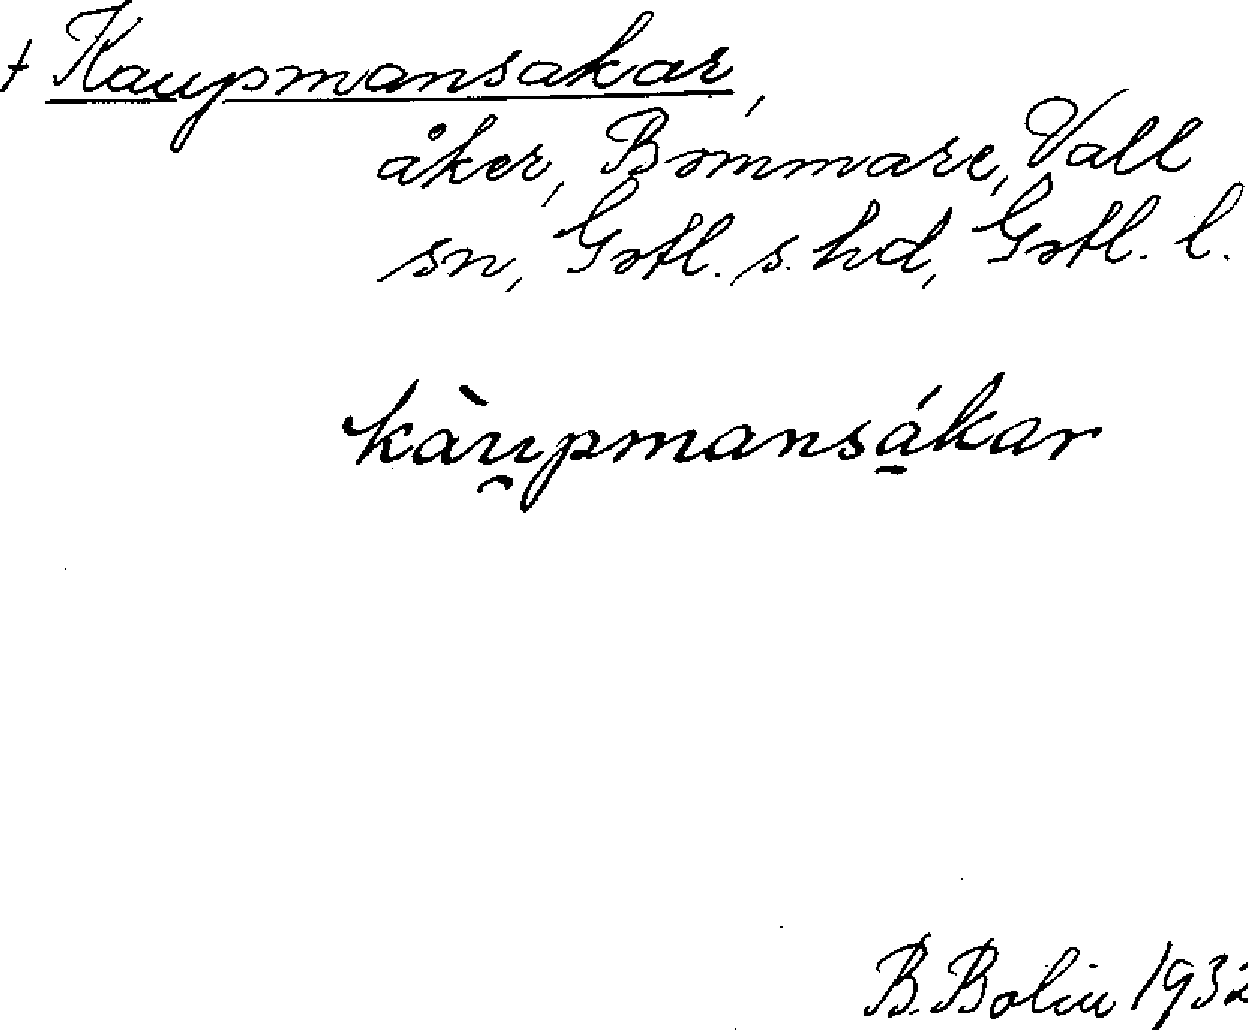 + Kaupmansakar,
åker, Bommare, Vall
sn, Gotl. s. hd, Gotl. l.
kàu̯pmansá̱kar
B. Bolin 1932